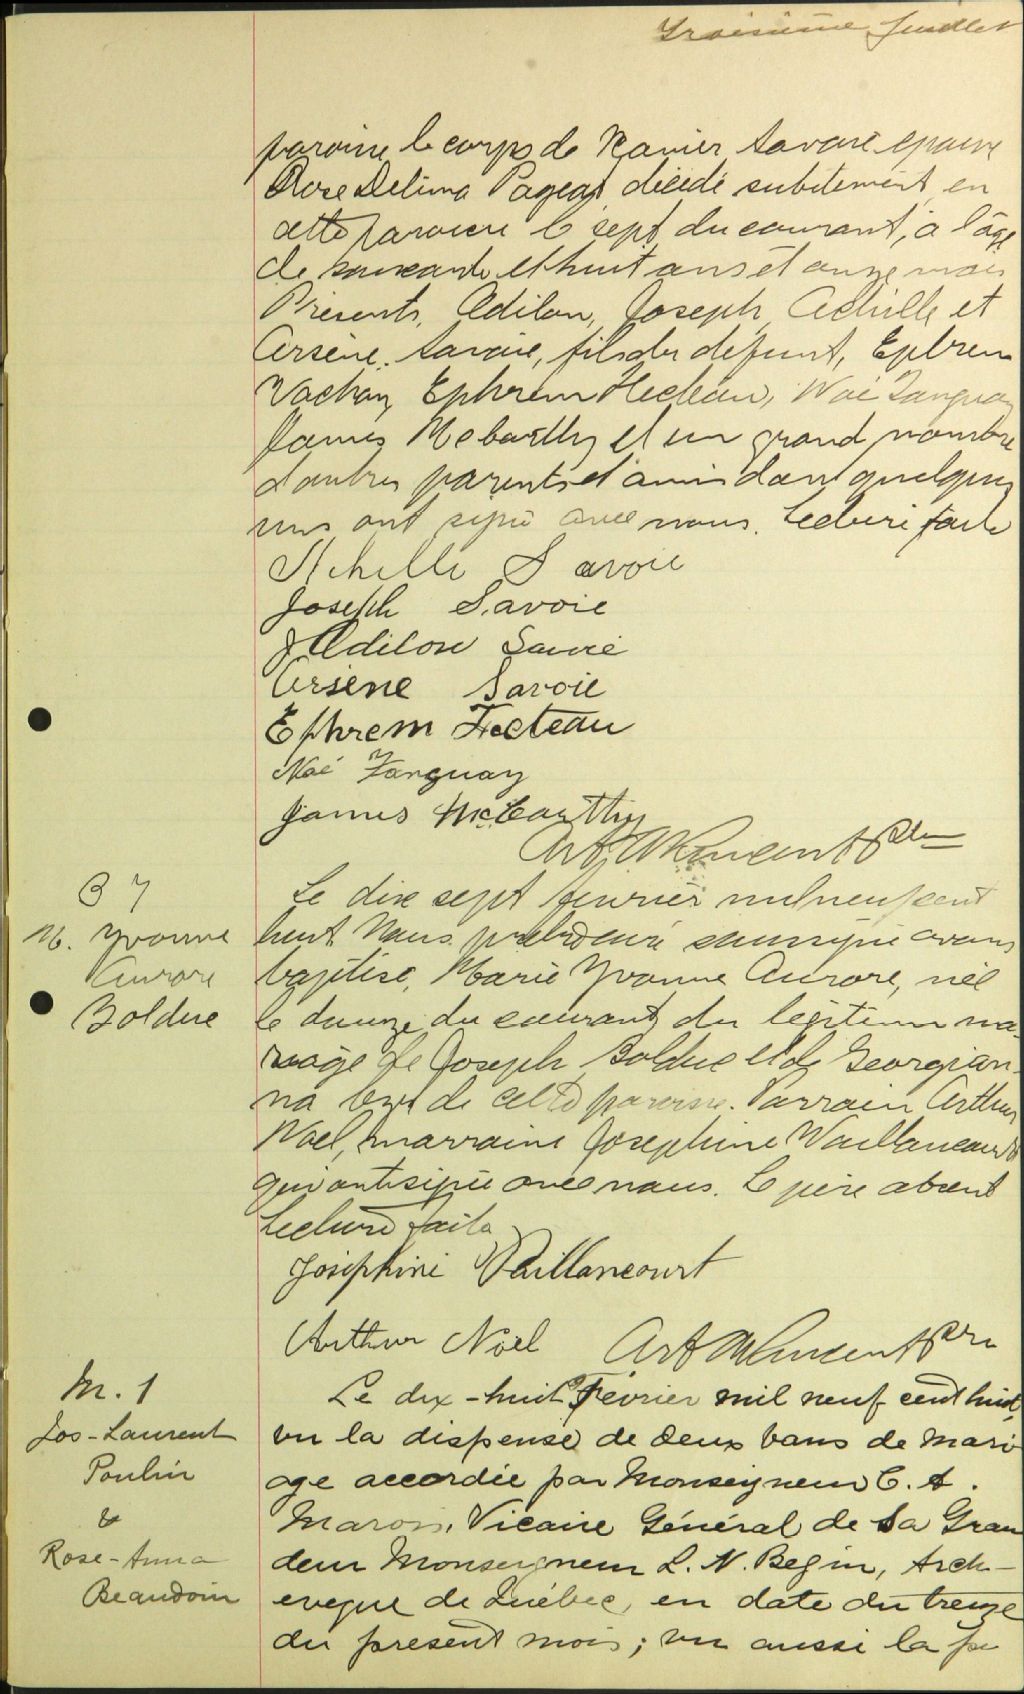 Troisième feuillet
paroisse le corps de Xavier Savoie epoux
Rose Delima Pageot, décédé subitement en
cette paroisse le sept du courant, à l'âge
de soixante et huit ans et onze mois
Présents, Odilon, Joseph, Achille et
Arsène Savoie, fils du defunt, Ephrem
Vachon, Ephrem Fecteau, Noé Tanguay
James McCarthy et un grand nombre
d'autres parents et amis dont quelques
uns ont signé avec nous. Lecture faite
Achille Savoie
Joseph Savoie
J Odilon Savoie
Arsène Savoie
Ephrem Fecteau
Noé Tanguay
James McCarthy
Art. Vincent Ptre
B 7
M. Yvonne
Aurore
Bolduc
Le dix sept fevrier mil neuf cent
huit Nous prêtre curé soussigné avons
baptisé, Marie Yvonne Aurore, née
le douze du courant, du légitime ma-
riage de Joseph Bolduc et de Georgian-
na de cette paroisse. Parrain Arthur
Noel, marraine Josephine Vaillancourt
qui ont signé avec nous. Le père absent
Lecture faite
Josephine Vaillancourt
Arthur Noël Art Vincent Ptre
M. 1
Jos-Laurent
Poulin
&
Rose-Anna
Beaudoin
Le dix-huit Février mil neuf cent huit,
vu la dispense de deux bans de mari-
age accordée par Monseigneur C. A.
Marois, Vicaire Général de Sa Gran
deur Monseigneur L. N. Begin, Arch-
eveque de Québec, en date du treize
du present mois; vu aussi la pu